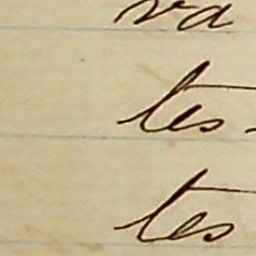 va
tes-
tes